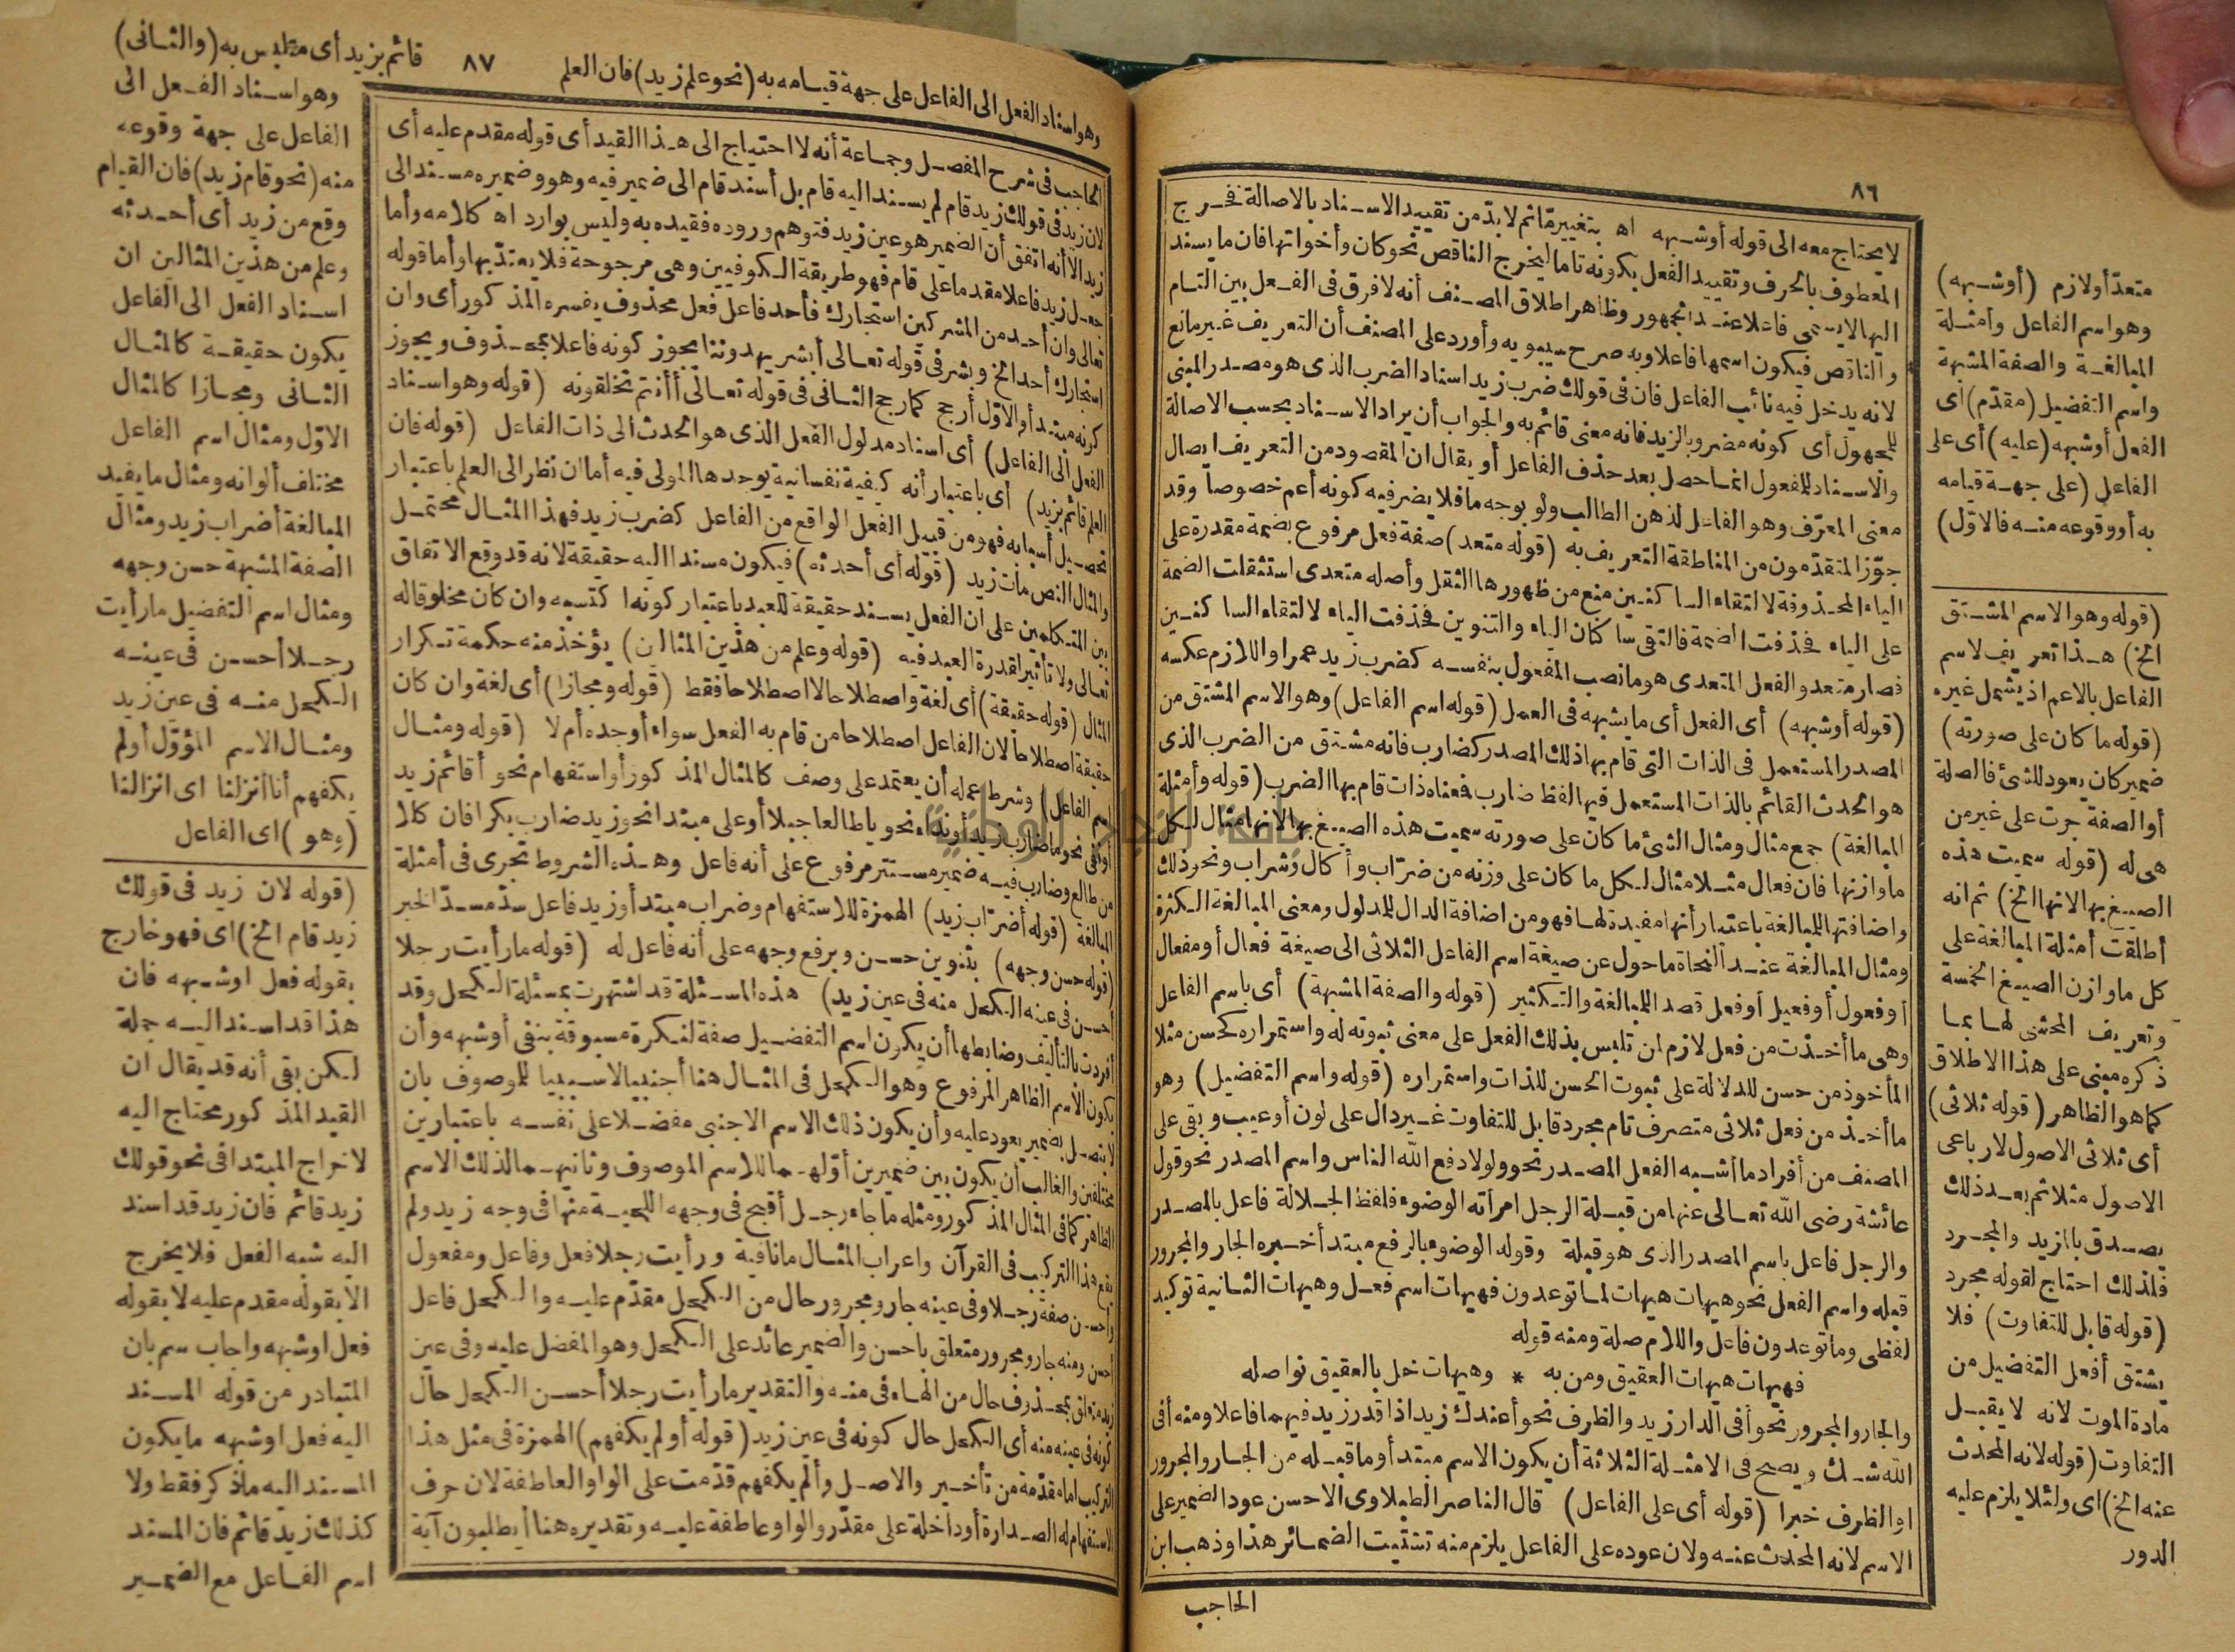 ٨٦
لا يحتاج معه الى قوله أو شبهه اه بتغيير مّا ثم لا بدّ من تقييد الاسناد بالاصالة فخرج
المعطوف بالحرف وتقييد الفعل بكونه تاما ليخرج الناقص نحو كان وأخواتها فان ما يسند
اليها لا يسمى فاعلا عند الجمهور وظاهر اطلاق المصنف أنه لا فرق فى الفعل بين التام
والناقص فيكون اسمها فاعلا وبه صرح سيبويه وأورد على المصنف أن التعريف غير مانع
لانه يدخل فيه نائب الفاعل فان فى قولك ضرب زيد اسناد الضرب الذى هو مصدر المبنى
للمجهول أى كونه مضروبا لزيد فانه معنى قائم به والجواب أن يراد الاسناد بحسب الاصالة
والاسناد للمفعول انما حصل بعد حذف الفاعل أو يقال ان المقصود من التعريف ايصال
معنى المعرّف وهو الفاعل لذهن الطالب ولو بوجه ما فلا يضر فيه كونه أعم خصوصا وقد
جوّز المتقدّمون من المناطقة التعريف به (قوله متعد) صفة فعل مرفوع بضمة مقدرة على
الياء المحذوفة لالتقاء الساكنين منع من ظهورها الثقل وأصله متعدى استثقلت الضمة
على الياء فحذفت الضمة فالتقى ساكنان الياء والتنوين فحذفت الياء لالتقاء الساكنين
فصار متعد والفعل المتعدى هو ما نصب المفعول بنفسه كضرب زيد عمرا واللازم عكسه
(قوله أو شبهه) أى الفعل أى ما يشبهه فى العمل (قوله اسم الفاعل) وهو الاسم المشتق من
المصدر المستعمل فى الذات التى قام بها ذلك المصدر كضارب فانه مشتق من الضرب الذى
هو الحدث القائم بالذات المستعمل فيها لفظ ضارب فمعناه ذات قام بها الضرب (قوله وأمثلة
المبالغة) جمع مثال ومثال الشئ ما كان على صورته سميت هذه الصيغ بها لانها مثال لكل
ما وازنها فان فعال مثلا مثال لكل ما كان على وزنه من ضرّاب وأكال وشراب ونحو ذلك
واضافتها للمبالغة باعتبار أنها مفيدة لها فهو من اضافة الدال للمدلول ومعنى المبالغة الكثرة
ومثال المبالغة عند النحاة ما حول عن صيغة اسم الفاعل الثلاثى الى صيغة فعال أو مفعال
أو فعول أو فعيل أو فعل قصد المبالغة والتكثير (قوله والصفة المشبهة) أى باسم الفاعل
وهى ما أخذت من فعل لازم لمن تلبس بذلك الفعل على معنى ثبوته له واستمراره كحسن مثلا
المأخوذ من حسن للدلالة على ثبوت الحسن للذات واستمراره (قوله واسم التفضيل) وهو
ما أخذ من فعل ثلاثى متصرف تام مجرد قابل للتفاوت غير دال على لون أو عيب وبقى على
المصنف من أفراد ما أشبه الفعل المصدر نحو ولولا دفع الله الناس واسم المصدر نحو قول
عائشة رضى الله تعالى عنها من قبلة الرجل امرأته الوضوء فلفظ الجلالة فاعل بالمصدر
والرجل فاعل باسم المصدر الذى هو قبلة وقوله الوضوء بالرفع مبتدأ خبره الجار والمجرور
قبله واسم الفعل نحو هيهات هيهات لما توعدون فهيهات اسم فعل وهيهات الثانية توكيد
لفظى وما توعدون فاعل واللام صلة ومنه قوله
فهيهات هيهات العقيق ومن به * وهيهات خل بالعقيق نواصله
والجار والمجرور نحو أفى الدار زيد والظرف نحو أعندك زيد اذا قدر زيد فيهما فاعلا ومنه أفى
الله شك ويصح فى الامثلة الثلاثة أن يكون الاسم مبتدأ وما قبله من الجار والمجرور
او الظرف خبرا (قوله أى على الفاعل) قال الناصر الطبلاوى الاحسن عود الضمير على
الاسم لانه المحدث عنه ولان عوده على الفاعل يلزم منه تشتيت الضمائر هذا وذهب ابن
الحاجب
متعدّ أو لازم (أو شبهه)
وهو اسم الفاعل وأمثلة
المبالغة والصفة المشبهة
واسم التفضيل (مقدّم) أى
الفعل أو شبهه (عليه) أى على
الفاعل (على جهة قيامه
به أو وقوعه منه فالاوّل)
(قوله وهو الاسم المشتق
الخ) هذا تعريف لاسم
الفاعل بالاعم اذ يشمل غيره
(قوله ما كان على صورته)
ضمير كان يعود للشئ فالصلة
أو الصفة جرت على غير من
هى له (قوله سميت هذه
الصيغ بها لانها الخ) ثم انه
أطلقت أمثلة المبالغة على
كل ما وازن الصيغ الخمسة
وتعريف المحشى لها بما
ذكره مبنى على هذا الاطلاق
كما هو الظاهر (قوله ثلاثى)
أى ثلاثى الاصول لا رباعى
الاصول مثلا ثم بعد ذلك
يصدق بالمزيد والمجرد
فلذلك احتاج لقوله مجرد
(قوله قابل للتفاوت) فلا
يشتق أفعل التفضيل من
مادة الموت لانه لا يقبل
التفاوت (قوله لانه المحدث
عنه الخ) اى ولئلا يلزم عليه
الدور
٨٧
وهو اسناد الفعل الى الفاعل على جهة قيامه به (نحو علم زيد) فان العلم
قائم بزيد أى متلبس به (والثانى)
وهو اسناد الفعل الى
الفاعل على جهة وقوعه
منه (نحو قام زيد) فان القيام
وقع من زيد أى أحدثه
وعلم من هذين المثالين ان
اسناد الفعل الى الفاعل
يكون حقيقة كالمثال
الثانى ومجازا كالمثال
الاوّل ومثال اسم الفاعل
مختلف ألوانه ومثال ما يفيد
المبالغة أضراب زيد ومثال
الصفة المشبهة حسن وجهه
ومثال اسم التفضيل ما رأيت
رجلا أحسن فى عينه
الكحل منه فى عين زيد
ومثال الاسم المؤوّل أولم
يكفهم أنا أنزلنا اى انزالنا
(وهو) اى الفاعل
الحاجب فى شرح المفصل وجماعة أنه لا احتياج الى هذا القيد أى قوله مقدم عليه أى
لان زيد فى قولك زيد قام لم يسند اليه قام بل أسند قام الى ضمير فيه وهو وضميره مسند الى
زيد الا أنه اتفق أن الضمير هو عين زيد فتوهم وروده فقيده به وليس بوارد اه كلامه وأما
جعل زيد فاعلا مقدما على قام فهو طريقة الكوفيين وهى مرجوحة فلا يعتدّ بها وأما قوله
تعالى وان أحد من المشركين استجارك فأحد فاعل فعل محذوف يفسره المذكور أى وان
استجارك أحد الخ وبشر فى قوله تعالى أبشر يهدوننا يجوز كونه فاعلا بمحذوف ويجوز
كونه مبتدأ والاوّل أرجح كما رجح الثانى فى قوله تعالى أأنتم تخلقونه (قوله وهو اسناد
الفعل الى الفاعل) أى اسناد مدلول الفعل الذى هو الحدث الى ذات الفاعل (قوله فان
العلم قائم بزيد) أى باعتبار أنه كيفية نفسانية يوجدها المولى فيه أما ان نظر الى العلم باعتبار
تحصيل أسبابه فهو من قبيل الفعل الواقع من الفاعل كضرب زيد فهذا المثال محتمل
والمثال النص مات زيد (قوله أى أحدثه) فيكون مسندا اليه حقيقة لانه قد وقع الاتفاق
بين المتكلمين على ان الفعل يسند حقيقة للعبد باعتبار كونه اكتسبه وان كان مخلوقا له
تعالى ولا تأثير لقدرة العبد فيه (قوله وعلم من هذين المثالين) يؤخذ منه حكمة تكرار
المثال (قوله حقيقة) أى لغة واصطلاحا لا اصطلاحا فقط (قوله ومجازا) أى لغة وان كان
حقيقة اصطلاحا لان الفاعل اصطلاحا من قام به الفعل سواء أوجده أم لا (قوله ومثال
اسم الفاعل) وشرط عمله أن يعتمد على وصف كالمثال المذكور أو استفهام نحو أقائم زيد
أو نفى نحو ما ضارب زيد أو نداء نحو يا طالعا جبلا أو على مبتدا نحو زيد ضارب بكرا فان كلا
من طالع وضارب فيه ضمير مستتر مرفوع على أنه فاعل وهذه الشروط تجرى فى أمثلة
المبالغة (قوله أضرّاب زيد) الهمزة للاستفهام وضراب مبتدأ وزيد فاعل سدّ مسدّ الخبر
(قوله حسن وجهه) بتنوين حسن وبرفع وجهه على أنه فاعل له (قوله ما رأيت رجلا
أحسن فى عينه الكحل منه فى عين زيد) هذه المسئلة قد اشتهرت بمسئلة الكحل وقد
أفردت بالتأليف وضابطها أن يكون اسم التفضيل صفة لنكرة مسبوقة بنفى أو شبهه وأن
يكون الاسم الظاهر المرفوع وهو الكحل فى المثال هنا أجنبيا لا سببيا للموصوف بان
لا يتصل بضمير يعود عليه وأن يكون ذلك الاسم الاجنبى مفضلا على نفسه باعتبارين
مختلفين والغالب أن يكون بين ضميرين أوّلهما للاسم الموصوف وثانيهما لذلك الاسم
الظاهر كما فى المثال المذكور ومثله ما جاء رجل أقبح فى وجهه اللحية منها فى وجه زيد ولم
يقع هذا التركيب فى القرآن واعراب المثال ما نافية ورأيت رجلا فعل وفاعل ومفعول
وأحسن صفة رجلا وفى عينه جار ومجرور حال من الكحل مقدّم عليه والكحل فاعل
أحسن ومنه جار ومجرور متعلق باحسن والضمير عائد على الكحل وهو المفضل عليه وفى عين
زيد متعلق بمحذوف حال من الهاء فى منه والتقدير ما رأيت رجلا أحسن الكحل حال
كونه فى عينه منه أى الكحل حال كونه فى عين زيد (قوله أولم يكفهم) الهمزة فى مثل هذا
التركيب اما مقدّمة من تأخير والاصل وألم يكفهم قدّمت على الواو العاطفة لان حرف
الاستفهام له الصدارة أو داخلة على مقدّر والواو عاطفة عليه وتقديره هنا أيطلبون آية
(قوله لان زيد فى قولك
زيد قام الخ) اى فهو خارج
بقوله فعل او شبهه فان
هذا قد اسند اليه جملة
لكن بقى أنه قد يقال ان
القيد المذكور محتاج اليه
لاخراج المبتدا فى نحو قولك
زيد قائم فان زيد قد اسند
اليه شبه الفعل فلا يخرج
الا بقوله مقدم عليه لا بقوله
فعل او شبهه واجاب سم بان
المتبادر من قوله المسند
اليه فعل او شبهه ما يكون
المسند اليه ما ذكر فقط ولا
كذلك زيد قائم فان المسند
اسم الفاعل مع الضمير